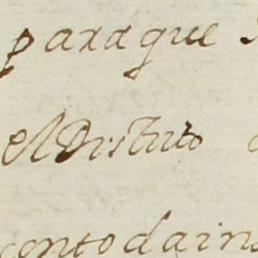 para que
el Distrito
conto da ins